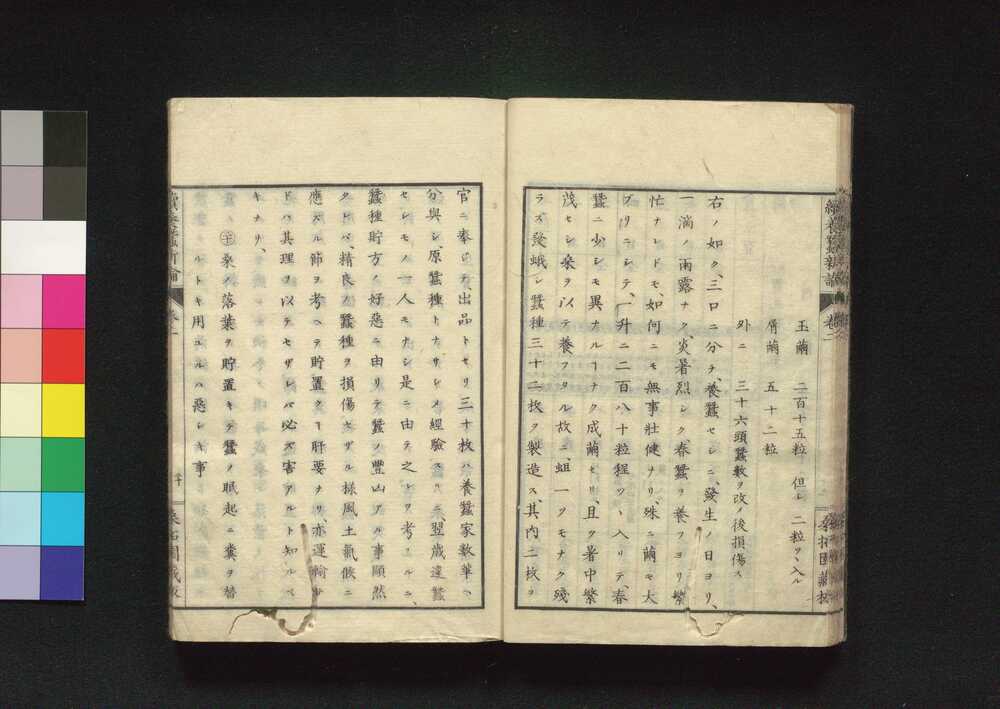 玉繭　二百十五粒　但シ二粒ヲ、入ル
屑繭　五十二粒
外ニ　三十六頭蠶数ヲ改ノ後損傷ス
右ノ如ク、三口ニ分チ、養蠶セシニ、發生ノ日ヨリ、
一滴ノ雨露ナク、炎暑烈シク、春蠶ヲ養フヨリ繁
忙ナレドモ、如何ニモ無事壯健ナリ、殊ニ繭モ大
ブリニシテ、一升ニ二百八十粒程ツヽ入リテ、春
蠶ニ少シモ異ナルヿナク成繭セリ、且ク暑中繁
茂セシ桑ヲ以テ養フタル故ニ、蛆一ツモナク殘
ラズ發蛾シ蠶種三十二枚ヲ製造ス、其内二枚ヲ
官ニ奉シテ、出品トセリ三十枚ハ養蠶家数軰ヘ
分與シ、原蠶種トナサシメ經驗スルニ、翌歳違蠶
セシモノ一人モナシ是ニ由テ之レヲ考フルニ、
蠶種貯方ノ好惡ニ由リテ蠶ノ豐凶アル事顯然
タトバ、精良ノ蠶種ヲ損傷セザル様風土氣候ニ
應スル節ヲ考ヘテ貯置クヿ肝要ナリ、亦運輸中
ドハ其理ヲ以テセザレバ必ズ害アルト知ルベ
キナリ、
㊦桑ノ落葉ヲ貯置キテ蠶ノ眠起ニ糞ヲ替
ルトキ用ユルハ惡シキ事
卷二